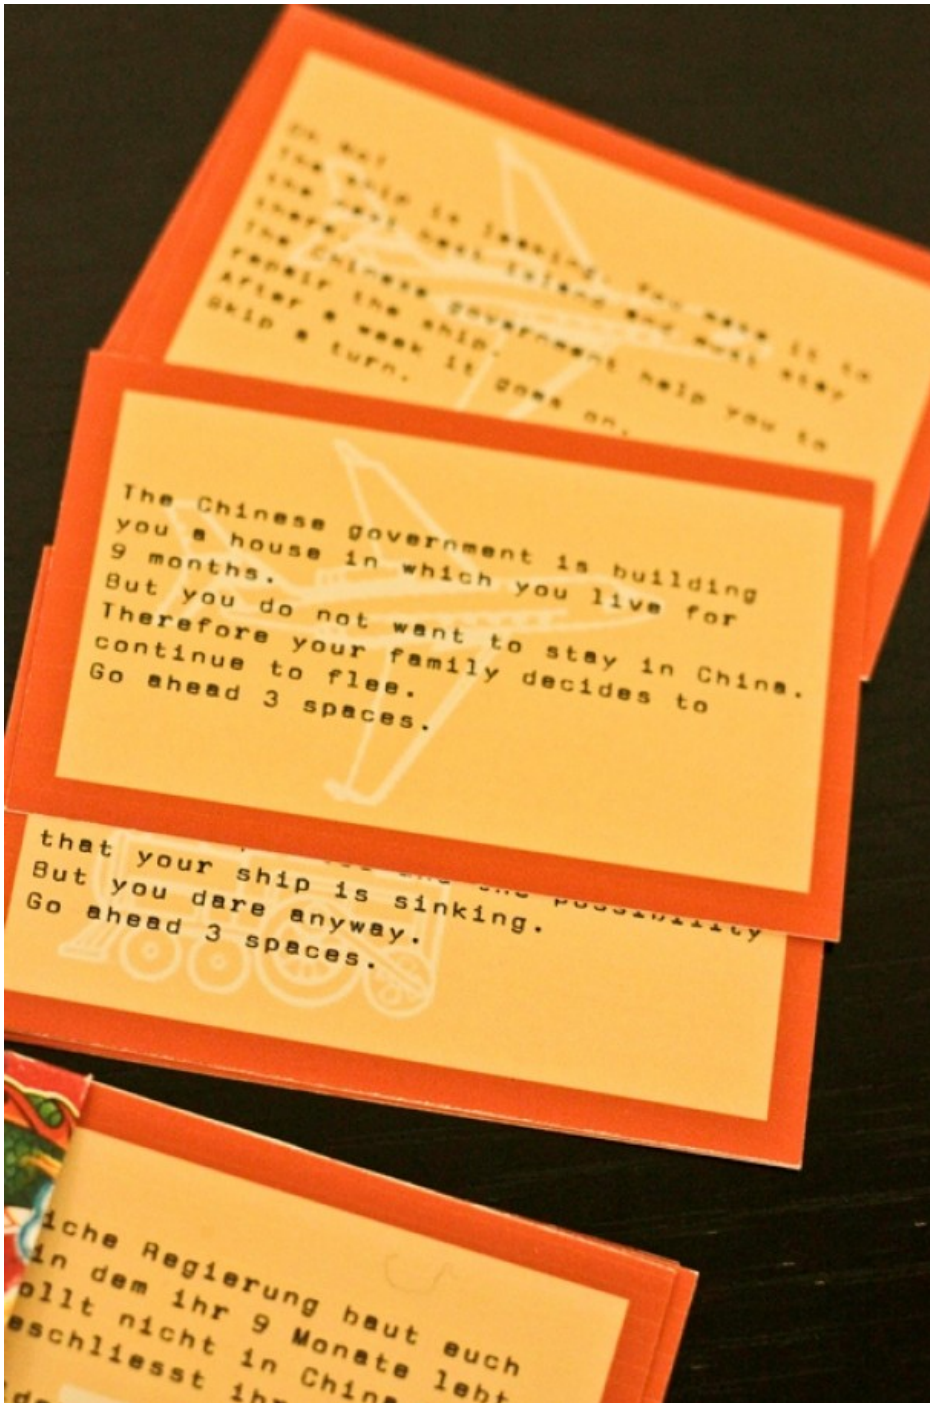 Oh no!
The ship is leaking. You make it to
the next best island and must stay
there.
The Chinese government help you to
repair the ship.
After a week it goes on.
Skip a turn.
The Chinese government is building
you a house in which you live for
9 months.
But you do not want to stay in China.
Therefore your family decides to
continue to flee.
Go ahead 3 spaces.
and the possibility
that your ship is sinking.
But you dare anyway.
Go ahead 3 spaces.
iche Regierung baut euch
in dem ihr 9 Monate lebt
ollt nicht in China
eschliesst ihr